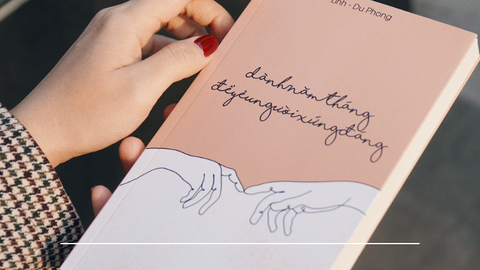 Linh - Du Phong
dành năm tháng
để yêu người xứng đáng